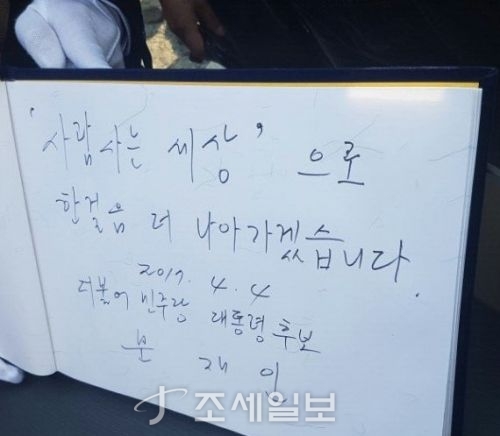 '사람사는 세상'으로
한걸음 더 나아가겠습니다.
2017. 4. 4
더불어 민주당 대통령 후보
문 재 인
조세일보